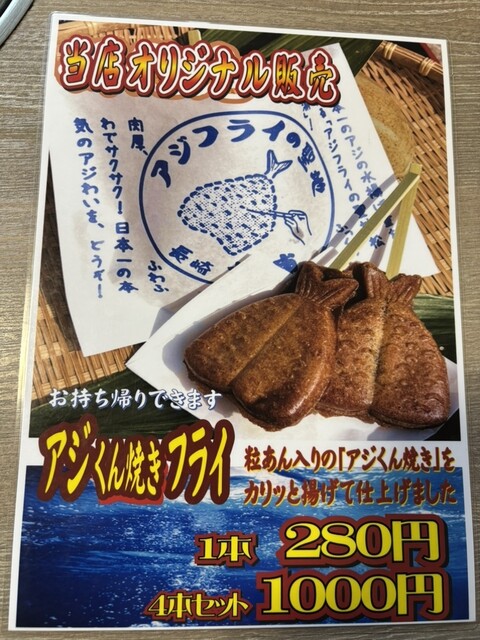 当店オリジナル販売
アジフライの聖著
長崎
肉厚、
わでサクサク!日本一の本
気のアジわいを、どうぞ!
ふわふ
お持ち帰りできます
アジくん焼きフライ
粒あん入りの「アジくん焼き」を
カリッと揚げて仕上げました
1本 280円
4本セット 1000円